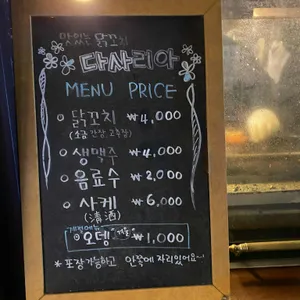 맛있는 닭꼬치
다사리아
MENU PRICE
닭꼬치 ₩4,000
(소금 간장 고추장)
생맥주 ₩4,000
음료수 ₩2,000
사케 ₩6,000
(清酒)
오뎅 ₩1,000
* 포장가능하고 안쪽에 자리있어요~